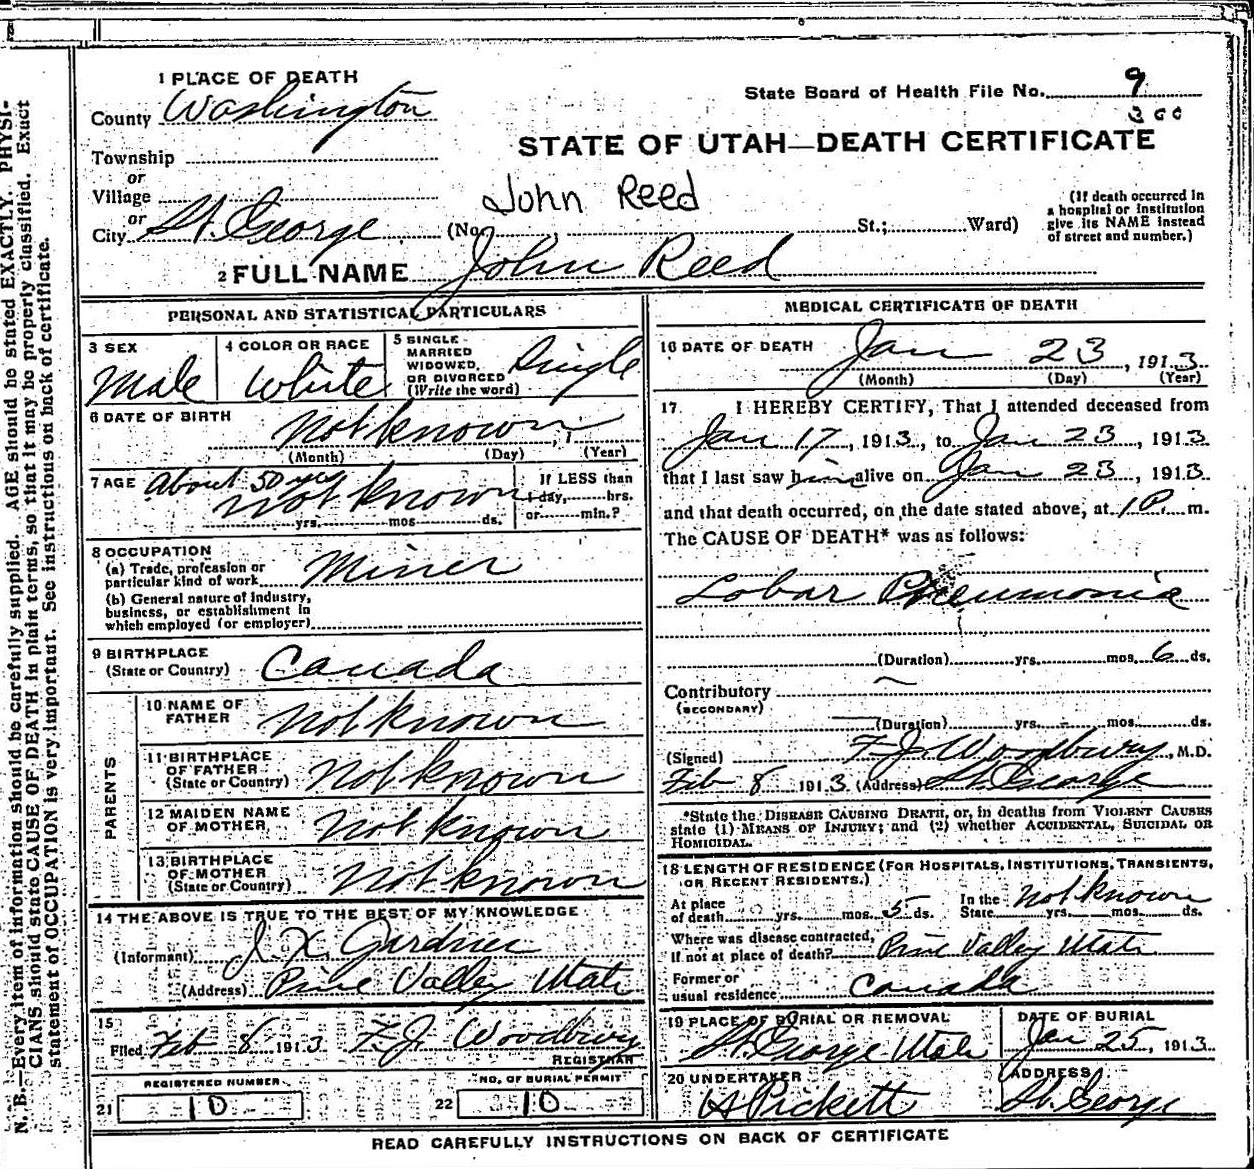 1 PLACE OF DEATH
County Washington
Township
or
Village
or
City St. George
State Board of Health File No. 9
300
STATE OF UTAH—DEATH CERTIFICATE
John Reed
(No. St.; Ward)
(If death occurred in
a hospital or institution
give its NAME instead
of street and number.)
2 FULL NAME John Reed
PERSONAL AND STATISTICAL PARTICULARS
3 SEX
Male
4 COLOR OR RACE
White
5 SINGLE
MARRIED
WIDOWED,
OR DIVORCED
(Write the word)
Single
6 DATE OF BIRTH
Not known, 1
(Month) (Day) (Year)
7 AGE About 50 yrs
Not known
yrs. mos. ds.
If LESS than
1 day, hrs.
or min.?
8 OCCUPATION
(a) Trade, profession or
particular kind of work Miner
(b) General nature of industry,
business, or establishment in
which employed (or employer)
9 BIRTHPLACE
(State or Country) Canada
PARENTS
10 NAME OF
FATHER Not known
11 BIRTHPLACE
OF FATHER
(State or Country) Not known
12 MAIDEN NAME
OF MOTHER Not known
13 BIRTHPLACE
OF MOTHER
(State or Country) Not known
14 THE ABOVE IS TRUE TO THE BEST OF MY KNOWLEDGE
(Informant) J. X. Gardner
(Address) Pine Valley Utah
15
Filed Feb 8 1913 F. J. Woodbury
REGISTRAR
REGISTERED NUMBER
21 10
NO. OF BURIAL PERMIT
22 10
MEDICAL CERTIFICATE OF DEATH
16 DATE OF DEATH Jan 23, 1913
(Month) (Day) (Year)
17 I HEREBY CERTIFY, That I attended deceased from
Jan 17, 1913, to Jan 23, 1913
that I last saw him alive on Jan 23, 1913
and that death occurred, on the date stated above, at 1 P. m.
The CAUSE OF DEATH* was as follows:
Lobar Pneumonia
(Duration) yrs. mos. 6 ds.
Contributory
(SECONDARY)
(Duration) yrs. mos. ds.
(Signed) F. J. Woodbury, M.D.
Feb 8 1913 (Address) St. George
*State the DISEASE CAUSING DEATH, or, in deaths from VIOLENT CAUSES
state (1) MEANS OF INJURY; and (2) whether ACCIDENTAL, SUICIDAL OR
HOMICIDAL.
18 LENGTH OF RESIDENCE (FOR HOSPITALS, INSTITUTIONS, TRANSIENTS,
OR RECENT RESIDENTS.)
At place
of death yrs. mos. 5 ds.
In the
State Not known yrs. mos. ds.
Where was disease contracted,
If not at place of death? Pine Valley Utah
Former or
usual residence Canada
19 PLACE OF BURIAL OR REMOVAL
St. George Utah
DATE OF BURIAL
Jan 25, 1913
20 UNDERTAKER
Pickett
ADDRESS
St. George
READ CAREFULLY INSTRUCTIONS ON BACK OF CERTIFICATE
N. B.—Every item of information should be carefully supplied. AGE should be stated EXACTLY. PHYSI-
CIANS should state CAUSE OF DEATH in plain terms, so that it may be properly classified. Exact
statement of OCCUPATION is very important. See instructions on back of certificate.